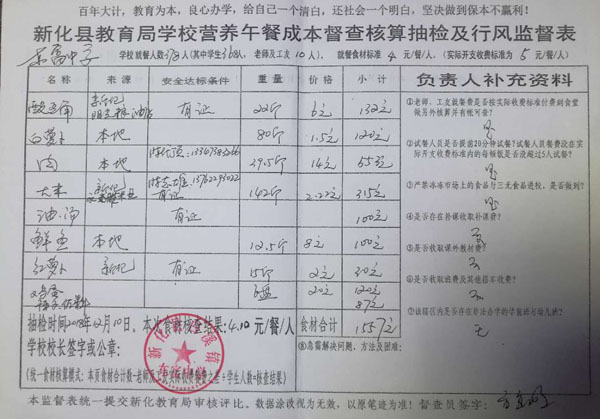 百年大计，教育为本，良心办学，给自己一个清白，还社会一个明白，坚决做到保本不赢利！
新化县教育局学校营养午餐成本督查核算抽检及行风监督表
学校就餐人数378人(其中学生368人，老师及工友10人)，就餐食材标准4元/餐/人，(实际开支收费标准为5元/餐/人)
名称 来源 安全达标条件 重量 价格 小计 负责人补充资料
酸豆角 新化 有证 22斤 6元 132元
①老师、工友就餐费是否按实际收费标准付费到食堂做另外核算并有帐可查？
是
白萝卜 本地 80斤 1.5元 120元
②试餐人员是否提前20分钟试餐？试餐人员餐费没在实际开支收费标准内的每顿饭是否没超过5人试餐？
是
肉 本地 39.5斤 14元 553元
③严禁冰冻市场上的食品与三无食品进校，是否做到？
是
大米 新化 有证 142斤 2.22元 315元
油、汤 有证 100元
④是否存在补课收取补课费？
否
鲜鱼 本地 12.5斤 8元 100元
⑤是否收取课外教材费？
否
红萝卜 新化 有证 15斤 2元 30元
⑥是否收取班费及其他搭车收费？
否
6盘 20元 120元
87元
⑦该辖区内是否存在非法办学的学前班与幼儿班？
无
抽检时间2018年12月10日。本次食材核查结果：4.10元/餐/人 食材合计 1557元
学校校长签字或公章：
⑧急需解决问题，方法及困难：
(统一食材核算模式：本页食材合计数-老师及工友实际收费餐费之差÷学生人数=核查结果)
本监督表统一提交新化教育局审核评比。数据涂改视为无效，以原笔迹为准！督查员签字：